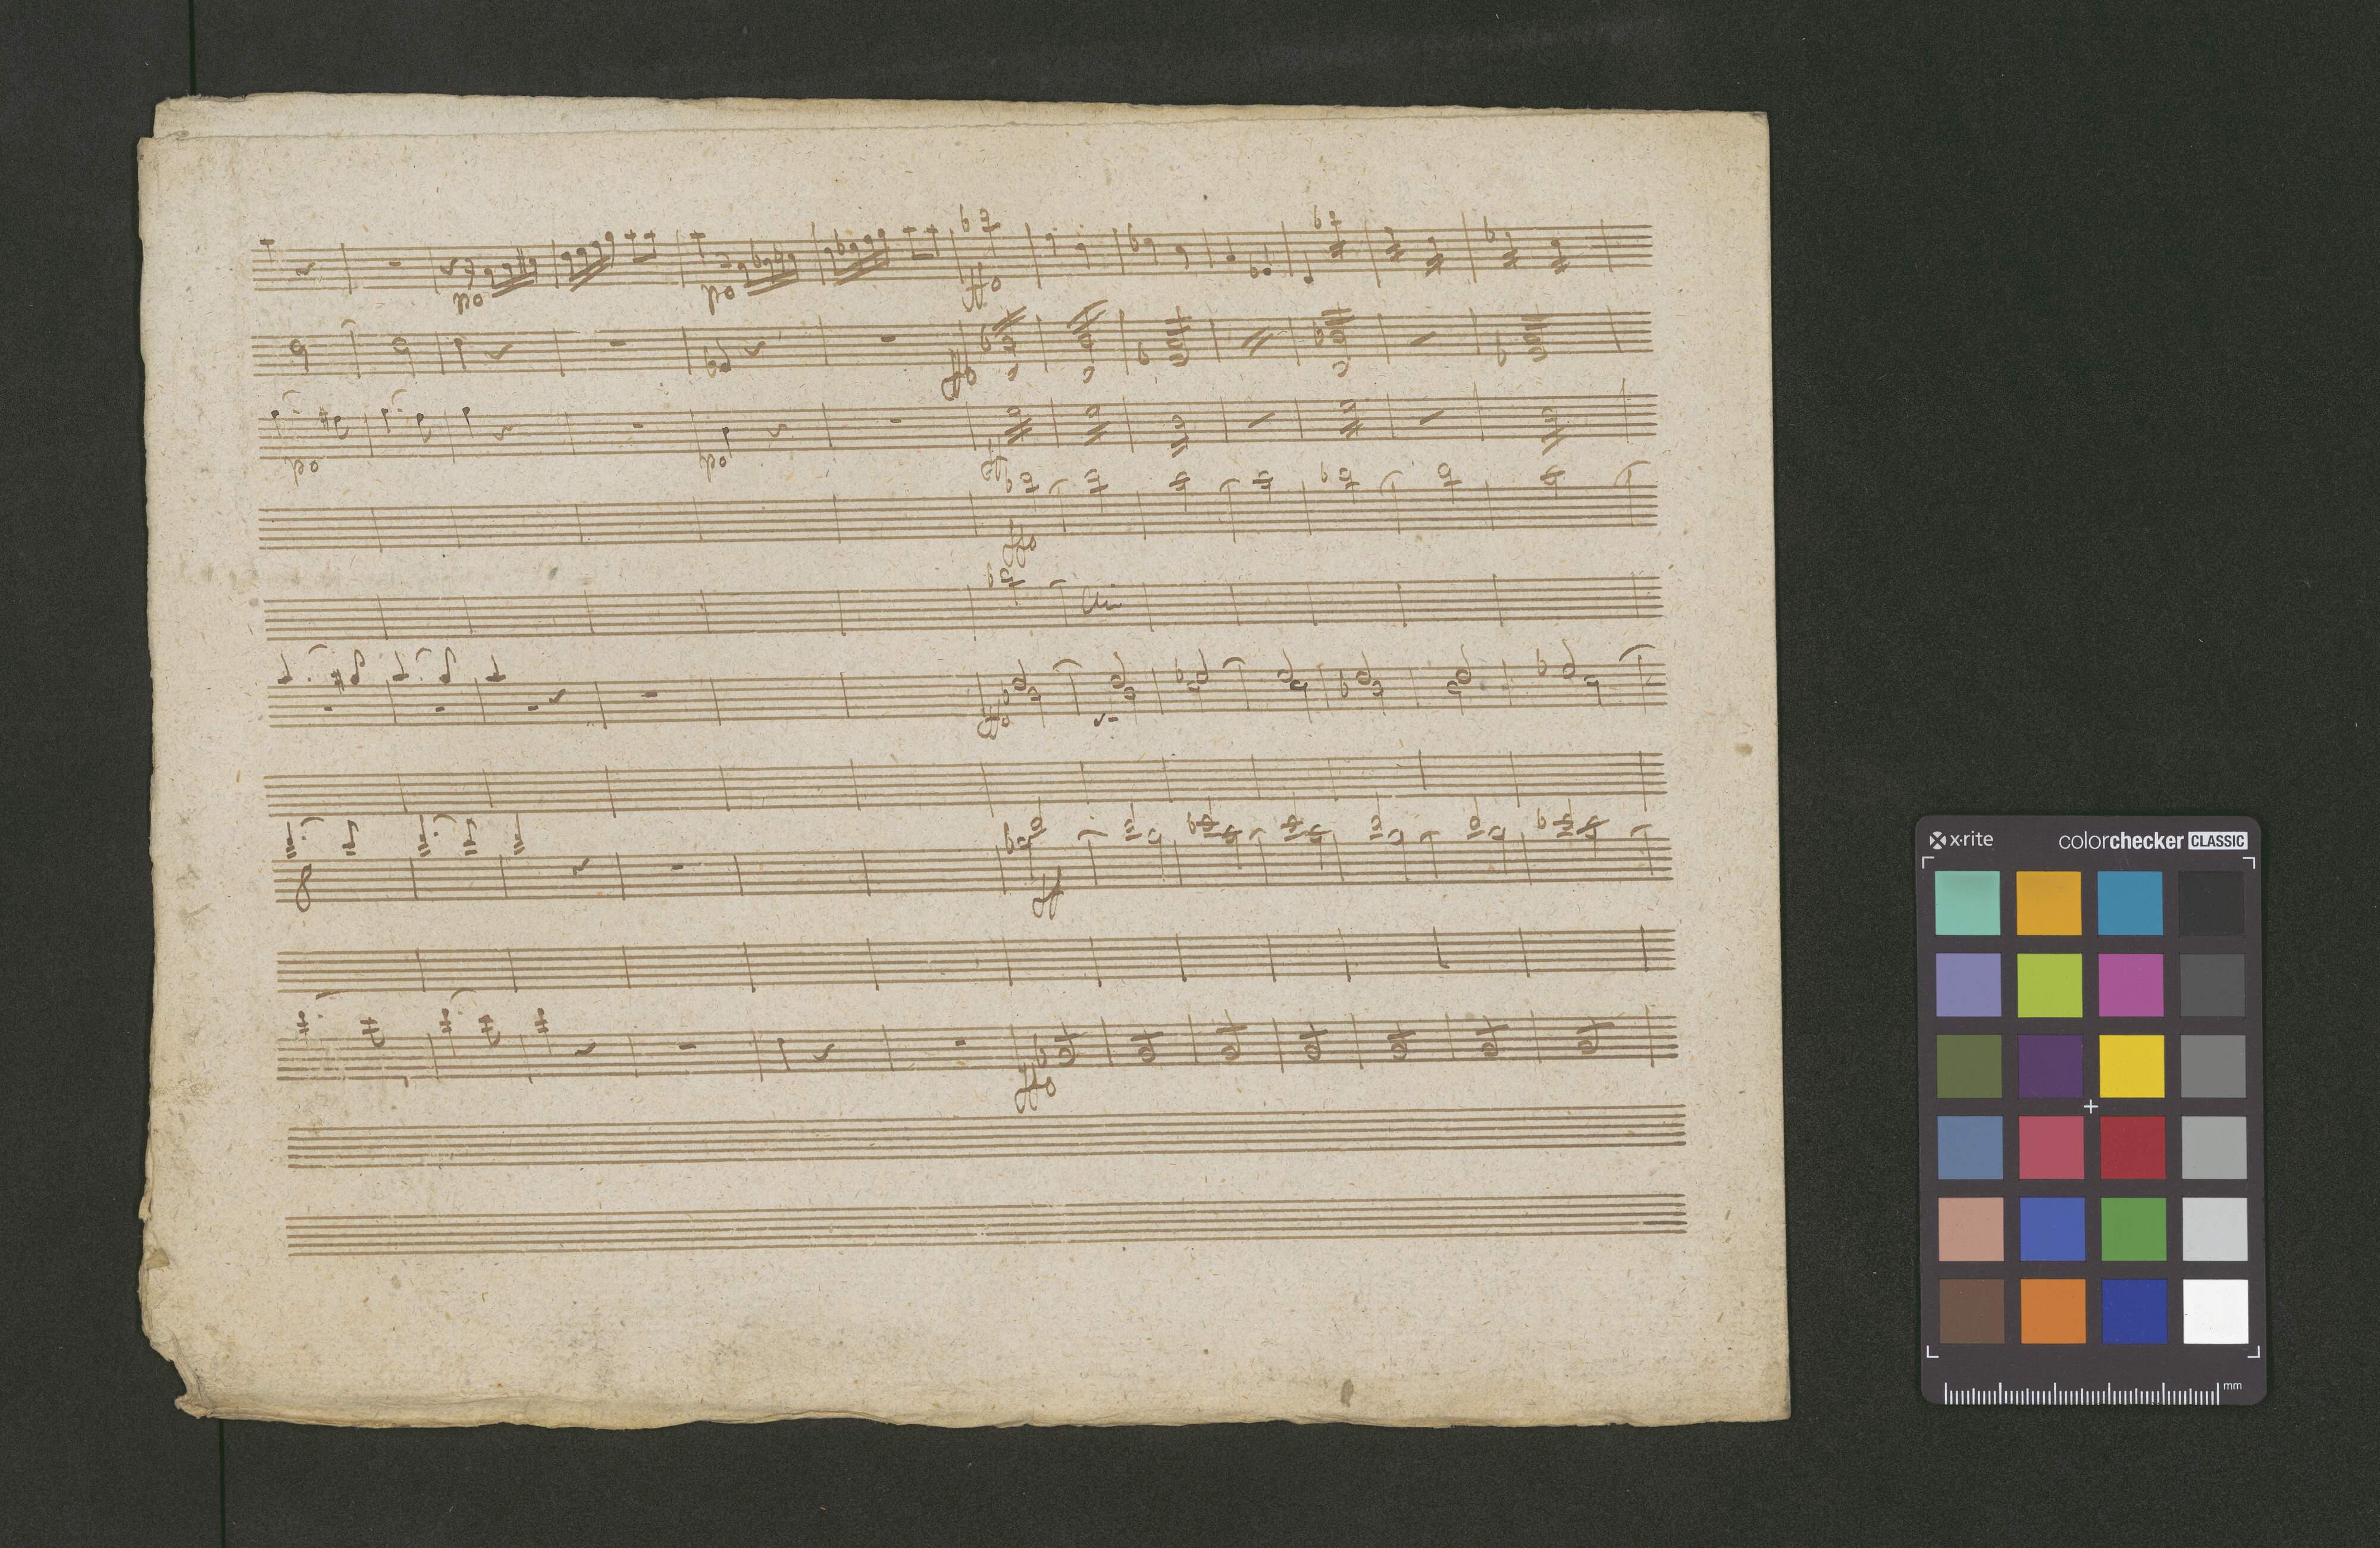 po po ffo
ffo
po po ff
ffo
uni
ffo
8 ff
ffo
x·rite colorchecker CLASSIC
mm